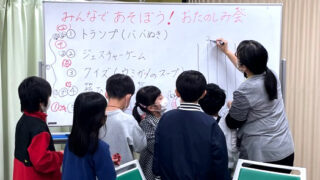 みんなであそぼう！おたのしみ会
① トランプ(ババぬき)
② ジェスチャーゲーム
③ クイズ(ウミガメのスープ)